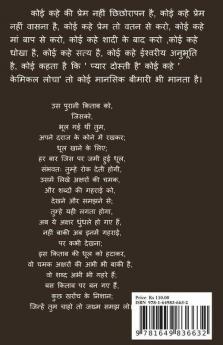 कोई कहे की प्रेम नहीं छिछोरापन है, कोई कहे प्रेम
नहीं वासना है, कोई कहे प्रेम तो वतन से करो, कोई कहे
मां बाप से करो, कोई कहे शादी के बाद करो ,कोई कहे
धोखा है, कोई कहे सत्य है, कोई कहे ईश्वरीय अनुभूति
है, कोई कहता है कि ' प्यार दोस्ती है' कोई कहे '
केमिकल सोचा' तो कोई मानसिक बीमारी भी मानता है।
उस पुरानी किताब को,
जिसको,
भूल गई थी तुम,
अपने दराज के कोने में रखकर;
धूल खाने के लिए;
हर बार जिस पर जमी हुई धूल,
संभवतः तुम्हे रोक देती होगी,
उसमें लिखे अक्षरों की चमक,
और शब्दों की गहराई को,
देखने और समझने से;
तुम्हे यही लगता होगा,
अब ये अक्षर धुंधले हो गए हैं,
नहीं बाकी अब इनमें गहराई,
पर कभी देखना;
इस किताब की धूल को हटाकर,
वो चमक अक्षरों की अभी भी बाकी है,
वो शब्द अभी भी गहरे हैं;
बस किताब पर बन गए हैं,
कुछ खरोंच के निशान,
जिन्हें तुम चाहो तो जख्म समझ लो।
Price: Rs 110.00
ISBN 978-1-64983-663-2
9 781649 836632